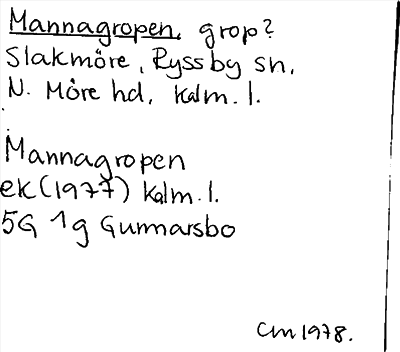 Mannagropen, grop?
Slakmöre, Ryssby sn,
N. Möre hd, Kalm. l.
Mannagropen
ek (1977) Kalm. l.
5G 1g Gunnarsbo
CM 1978.